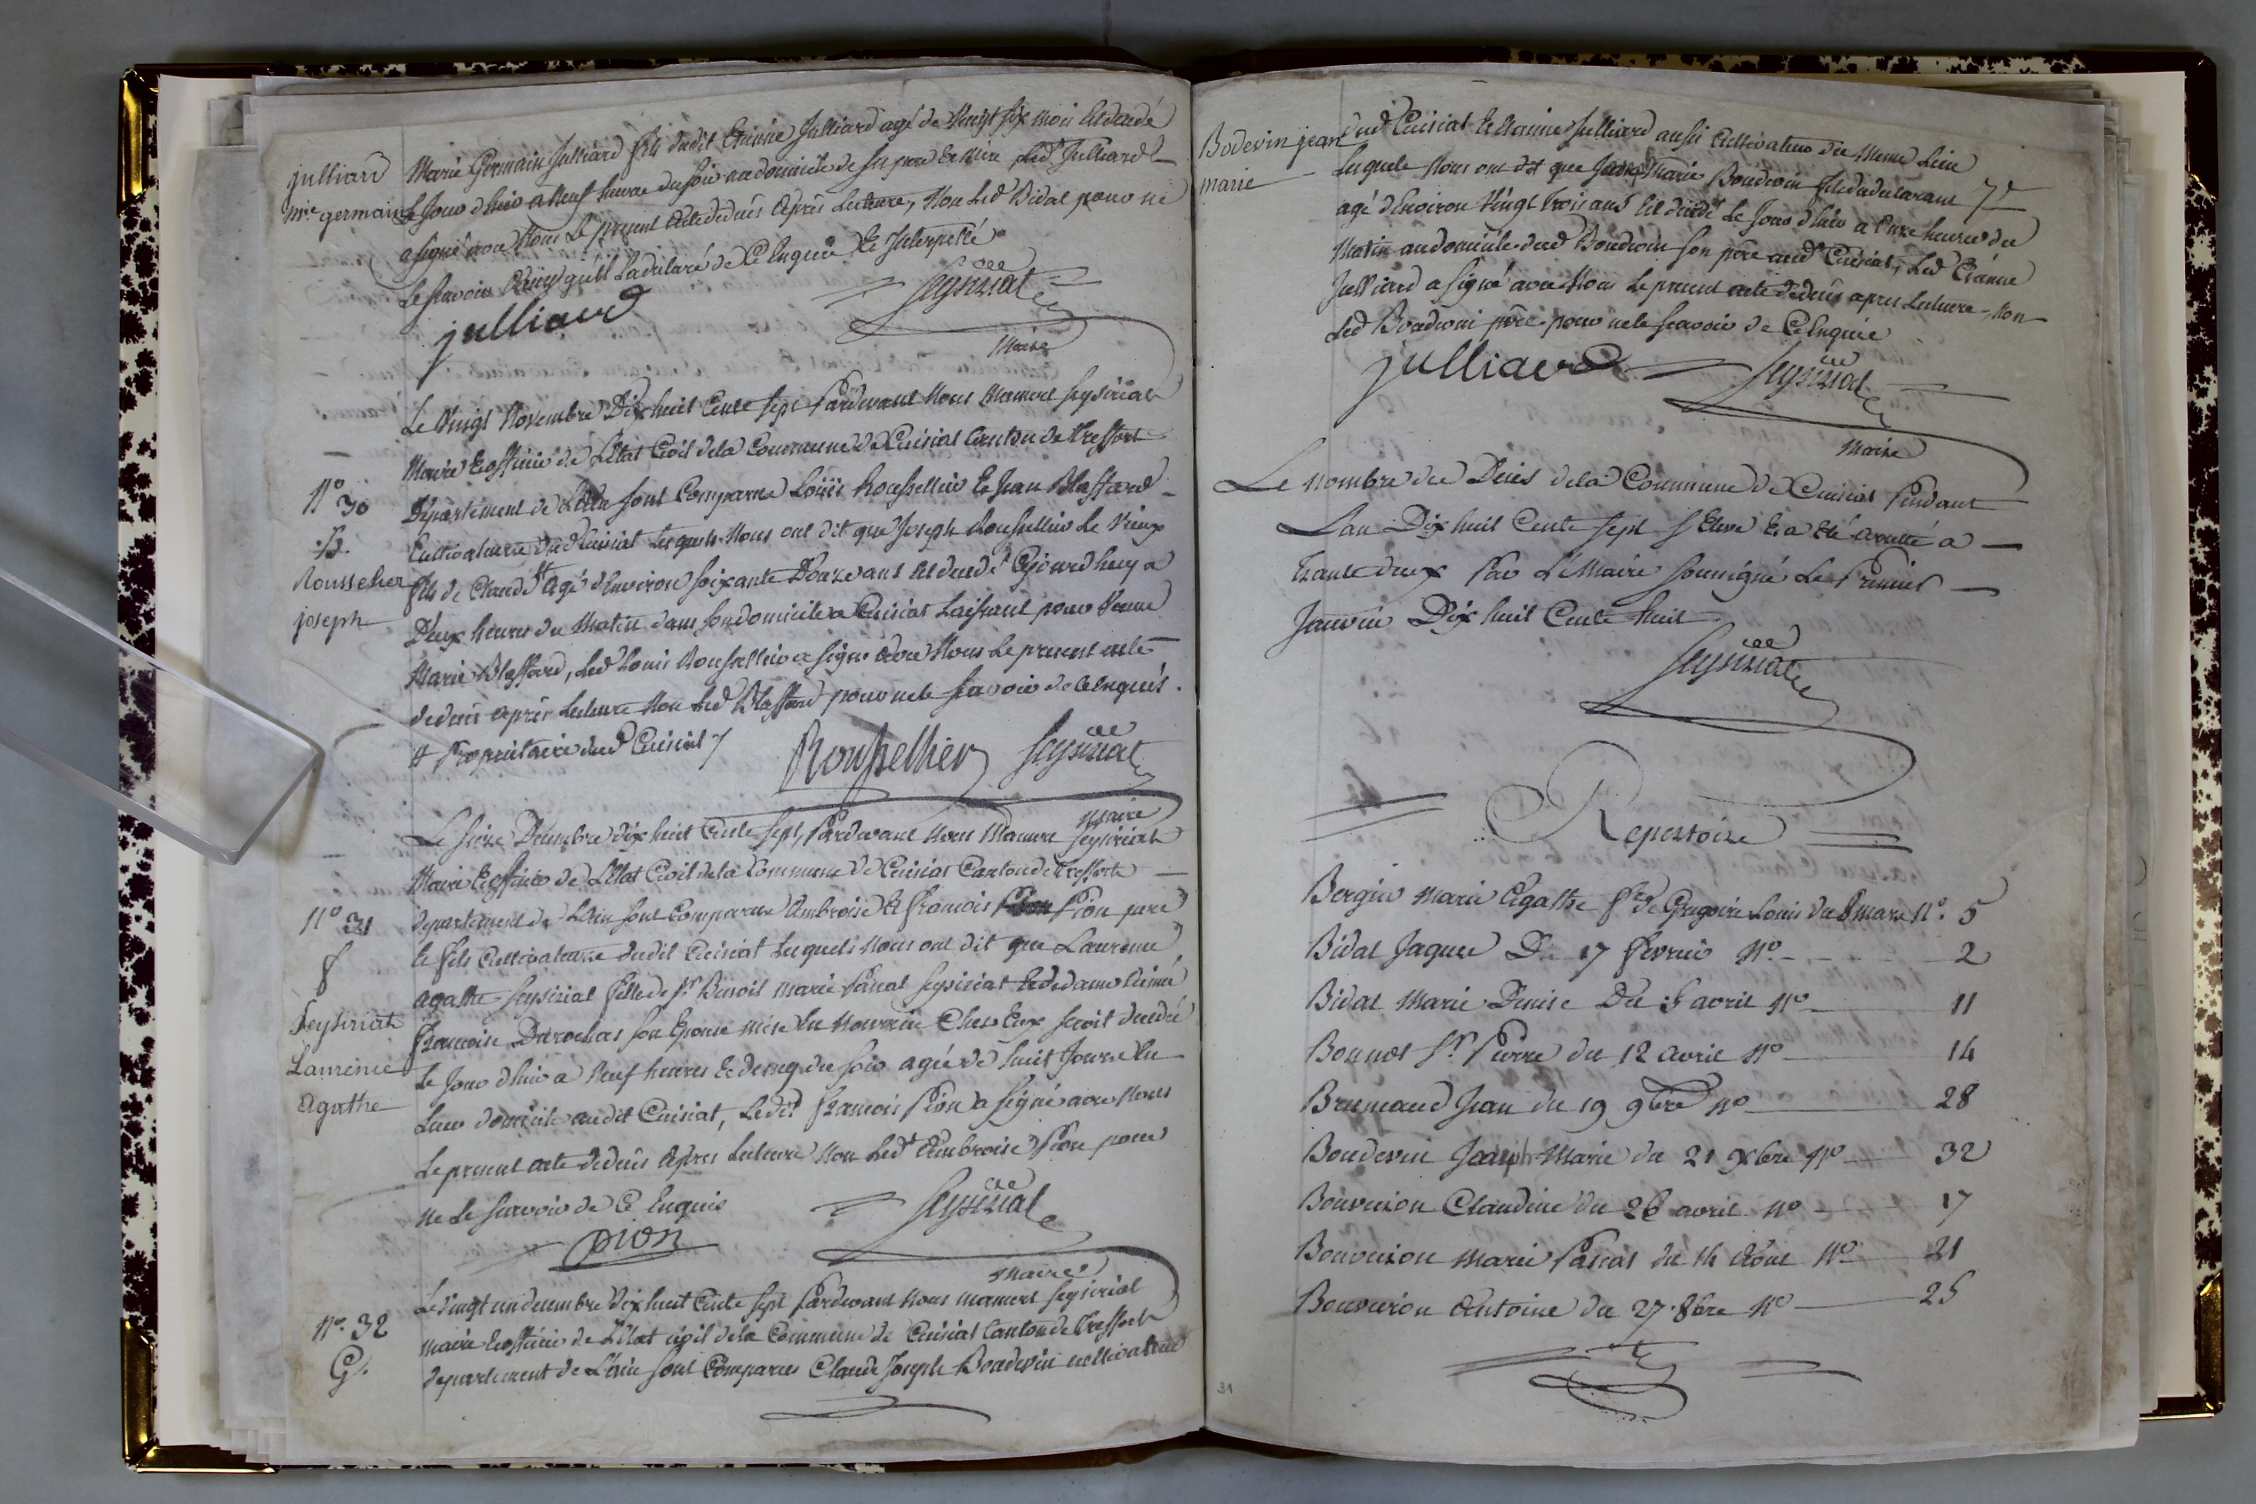 julliard
mie germain
Marie Germain Julliard fils dudit Etienne Julliard agé de vingt six mois Est decedé
Le Jour d'hier a Neuf heures du soir au domicile de ses pere Et Mere Led Julliard
a signé avec Nous Le present acte de decès Après Lecture, Non Led Bidal pour ne
Le scavoir Ainsy qu'il L'a declaré de Ce Enquis Et Interpellé
julliard
Seysiriat
Maire
Nº 30
Rousselier
joseph
Le Vingt Novembre Dix huit Cents Sept Pardevant Nous Mamert Seysiriat
Maire Et officier de L'état Civil de la Commune de Cuisiat Canton de Treffort
Departement de L'ain sont Comparus Louis Roussellier Et Jean Blaffard
Cultivateurs dud Cuisiat Lesquels Nous ont dit que Joseph Roussellier Le Vieux
fils de Claude # Agé d'Environ soixante Douze ans Est decedé Cejourd'huy a
Deux heures du Matin dans son domicile a Cuisiat Laissant pour Veuve
Marie Blaffard, Led Louis Rousellier a signé avec Nous Le present acte
de decès après Lecture Non Led Blaffard pour ne le scavoir de Ce Enquis.
# Proprietaire dud Cuisiat
Rousselier
Seysiriat
Maire
Nº 31
f
Seysiriat
Laurence
Agathe
Le seize Decembre dix huit Cents sept, Pardevant Nous Mamert Seysiriat
Maire Et officier de L'Etat Civil de la Commune de Cuisiat Canton de Treffort
departement de L'ain sont Comparus Ambroise Et francois Pion pere
Et fils Cultivateurs dudit Cuisiat Lesquels Nous ont dit que Laurence
agathe Seysiriat fille de Sr Benoit Marie Pascal Seysiriat Et de dame Aimé
francoise Durochas son Epouse mise En Nourrice Chez Eux seroit decedé
Le Jour d'hier a Neuf heures Et demy du soir agée de huit Jours En
Leur domicile audit Cuisiat, Ledit francois Pion a signé avec Nous
Le present acte de decès Après Lecture Non Led Ambroise Pion pour
ne Le scavoir de Ce Enquis
pion
Seysiriat
Maire
Nº 32
G.
Le vingt un decembre dix huit Cents sept Pardevant Nous mamert Seysiriat
maire Et officier de L'Etat civil de la Commune de Cuisiat Canton de Treffort
departement de L'ain sont Comparus Claude Joseph Boudevin cultivateur
Bodevin jean
marie
dud Cuisiat Et Etienne Julliard aussi Cultivateur du Meme Lieu
Lesquels Nous ont dit que Marie Boudevin fils du declarant
agé d'Environ Vingt Trois ans Est decedé Le Jour d'hier a onze heures du
Matin au domicile dud Boudevin son pere aud Cuisiat, Led Etienne
Julliard a signé avec Nous Le present acte de decès apres Lecture, Non
Led Boudevin père pour ne le scavoir de Ce Enquis
julliard
Seysiriat
Maire
Le nombre des Décès de la Commune de Cuisiat Pendant
L'an Dix huit Cents Sept S'Eleve Et a Eté arretté a
Trante deux Par Le Maire soussigné Le Premier
Janvier Dix huit Cents huit
Seysiriat
Repertoire
Bergier Marie Agathe de Gregoire Louis du 8 mars Nº 5
Bidal Jaques Du 17 fevrier Nº 2
Bidal Marie Denise Du 5 avril Nº 11
Bonnot Sr Pierre du 12 avril Nº 14
Brumeaud Jean du 19 9bre Nº 28
Boudevin Marie du 21 Xbre Nº 32
Bouveiron Claudine du 26 avril Nº 17
Bouveiron Marie Pascal du 14 Aout Nº 21
Bouveiron Antoine du 27 8bre Nº 25
31